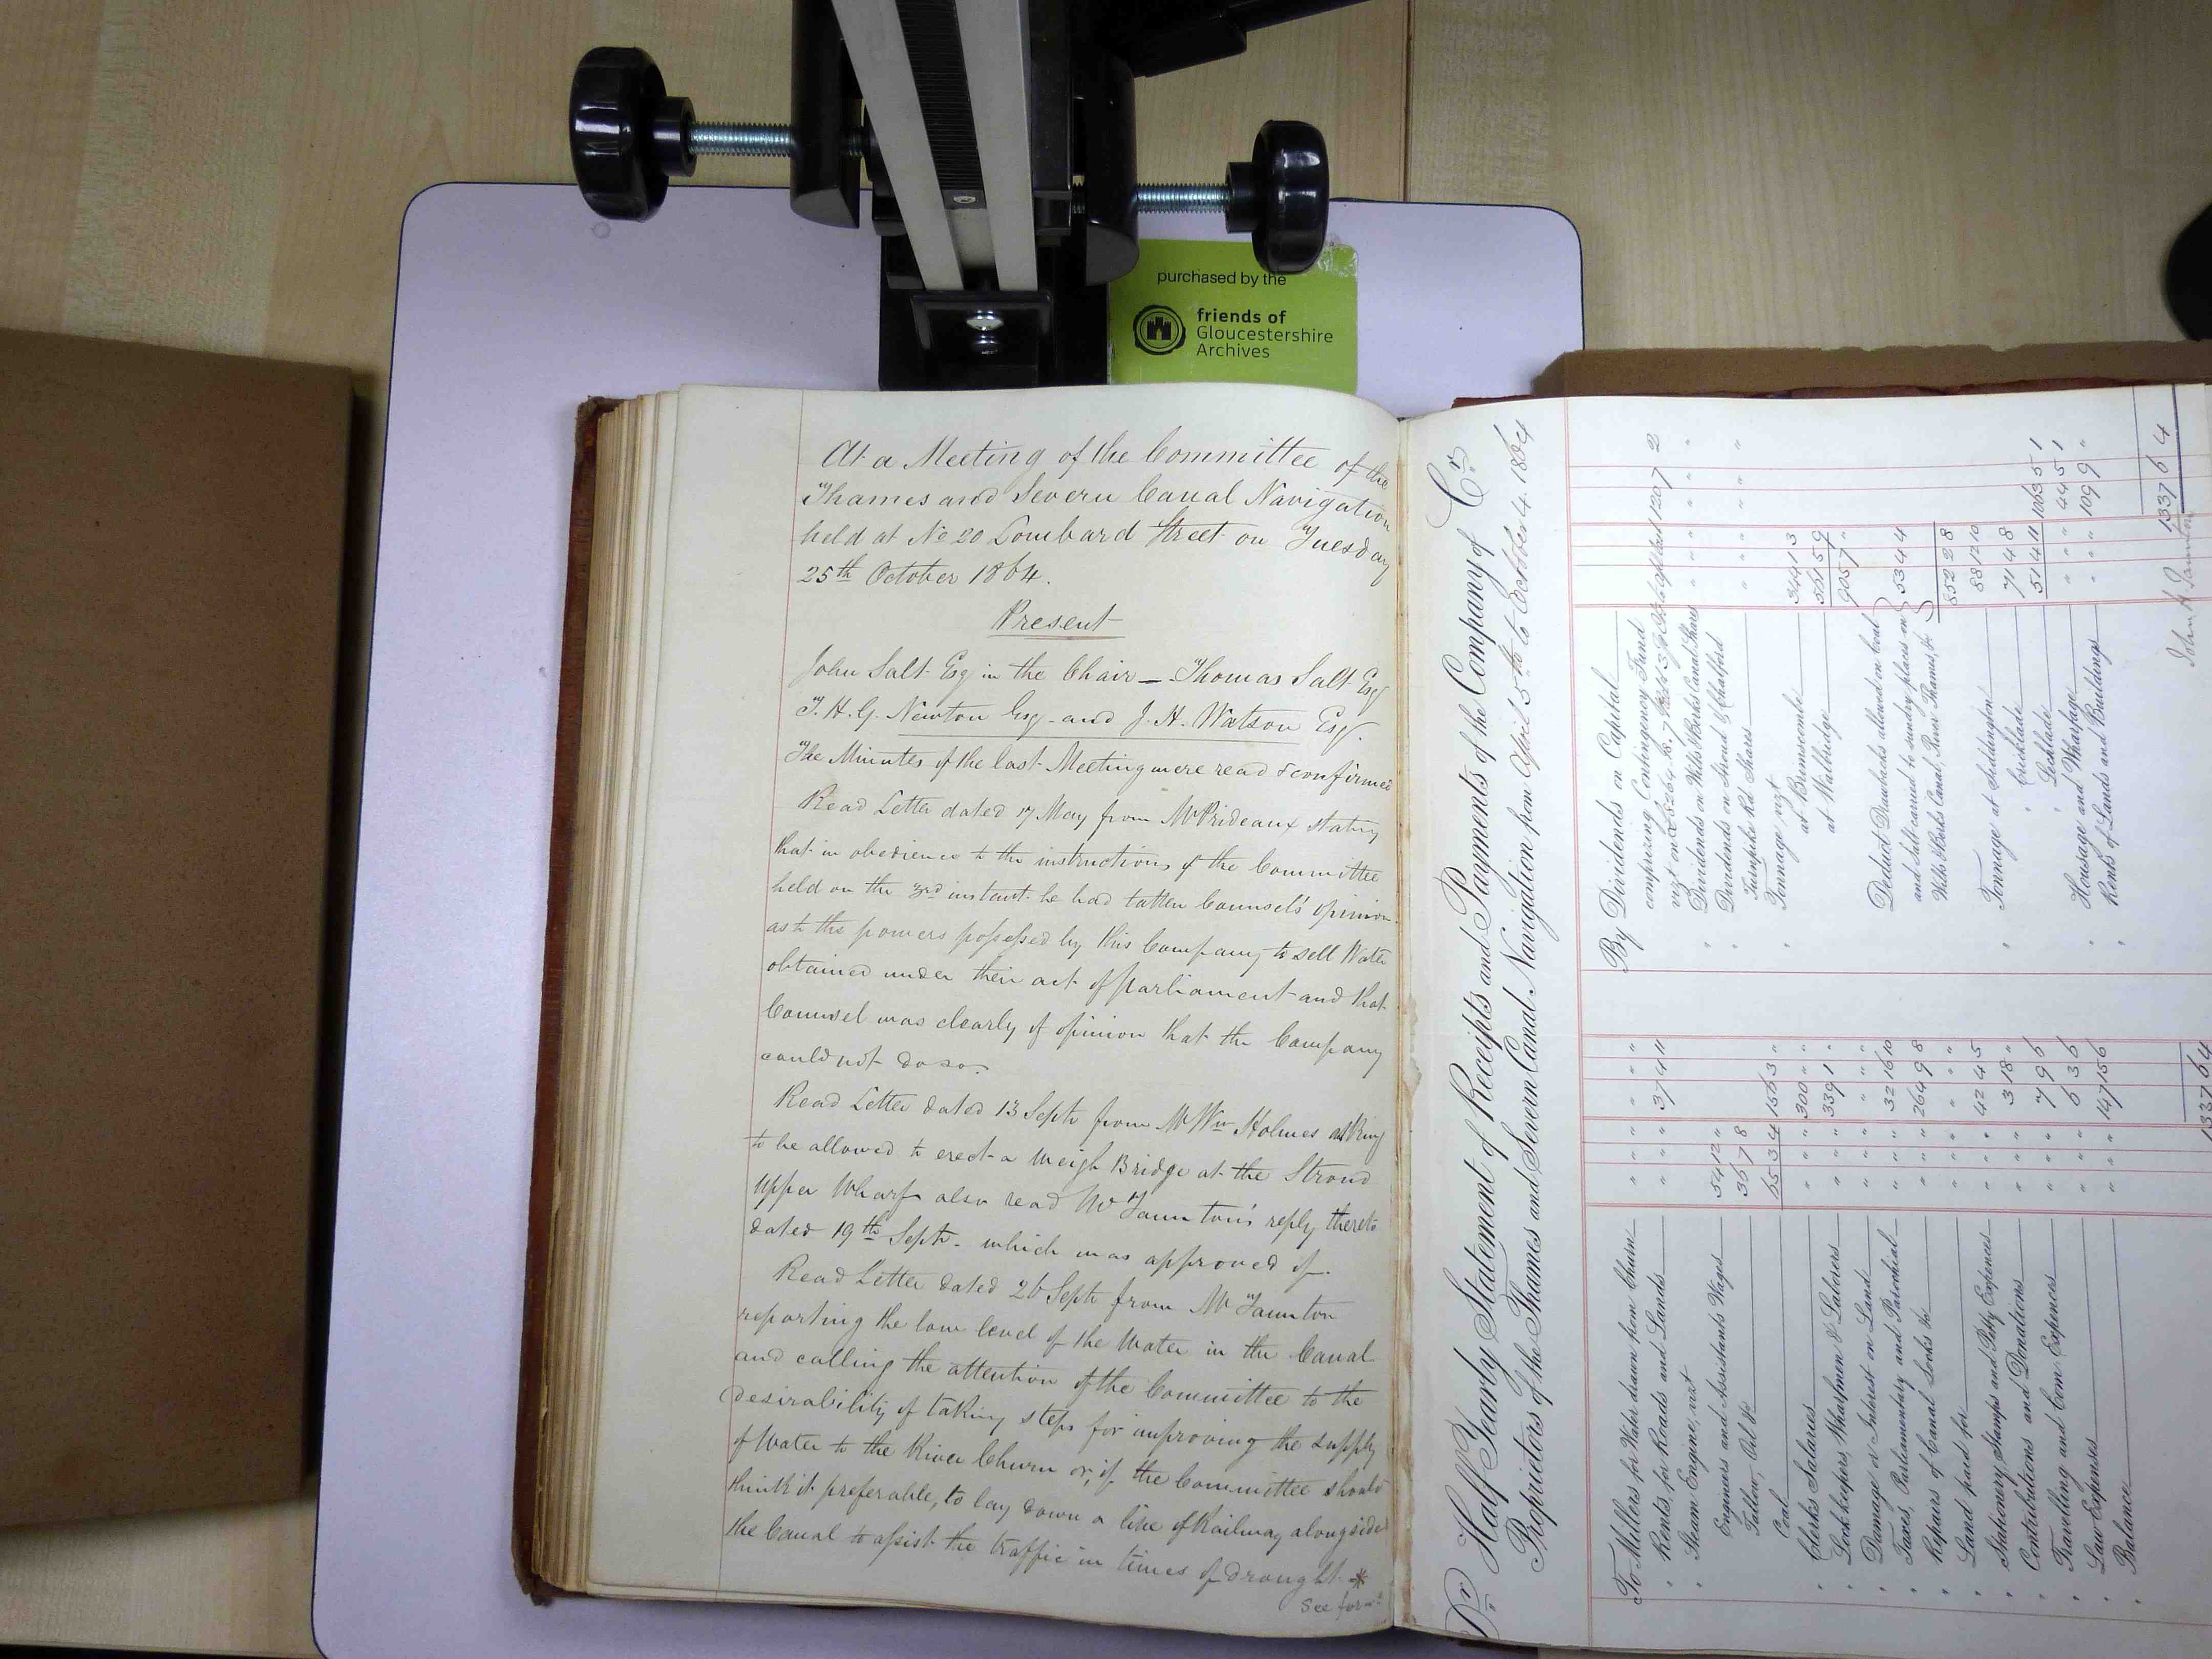 purchased by the
friends of
Gloucestershire
Archives
At a Meeting of the Committee of the
Thames and Severn Canal Navigation
held at No 20 Lombard Street on Tuesday
25th October 1864.
Present
John Salt Esq in the Chair — Thomas Salt Esq
T. H. G. Newton Esq and J. H. Watson Esq.
The Minutes of the last Meeting were read & confirmed
Read Letter dated 17 May from Mr Prideaux stating
that in obedience to the instructions of the Committee
held on the 3rd instant he had taken Counsel's opinion
as to the powers possessed by this Company to sell Water
obtained under their act of parliament and that
Counsel was clearly of opinion that the Company
could not do so.
Read Letter dated 13 Sept from Mr Wm Holmes asking
to be allowed to erect a Weigh Bridge at the Stroud
Upper Wharf also read Mr Taunton's reply thereto
dated 19th Sept. which was approved of.
Read Letter dated 26 Sept from Mr Taunton
reporting the low level of the Water in the Canal
and calling the attention of the Committee to the
desirability of taking steps for improving the supply
of Water to the River Churn or, if the Committee should
think it preferable, to lay down a line of Railway alongside
the Canal to assist the traffic in times of drought *
See
Dr Half Yearly Statement of Receipts and Payments of the Company of Cr
Proprietors of the Thames and Severn Canal Navigation from April 5th to October 4. 1864
To Millers for Water drawn from Churn " " " " " "
" Rents, for Roads and Lands " " " 37 4 11
" Steam Engine, vizt
Engineers and Assistants Wages 54 12 "
Tallow, Oil &c 36 7 8
Coal 65 3 4 156 3 "
" Clerks Salaries " " " 300 " "
" Lockkeepers, Wharfmen & Laborers " " " 339 1 "
" Damage or Interest on Land " " " " " "
" Taxes, Parliamentary and Parochial " " " 32 16 10
" Repairs of Canal Locks &c " " " 264 9 8
" Land paid for " " " " " "
" Stationery, Stamps and Petty Expences " " " 42 4 5
" Contributions and Donations " " " 3 18 "
" Travelling and Com. Expences " " " 7 9 6
" Law Expenses " " " 6 3 6
" Balance " " " 147 15 6
1337 6 4
By Dividends on Capital
comprizing Contingency Fund
" Dividends on Wilts & Berks Canal Shares " " " " " "
" Dividends on Stroud & Chalford
Turnpike Rd Shares " " " " " "
" Tonnage vizt
at Brimscombe 344 1 3
at Wallbridge 561 5 9
905 7 "
Deduct Drawbacks allowed on Coal
and Salt carried to sundry places on
Wilts & Berks Canal, River Thames, &c 53 4 4
852 2 8
" Tonnage at Siddington 88 12 10
" Cricklade 71 4 8
" Lechlade 51 4 11 1063 5 1
" Housage and Wharfage " " " 44 5 1
" Rents of Lands and Buildings " " " 109 9 "
1337 6 4
John H Taunton